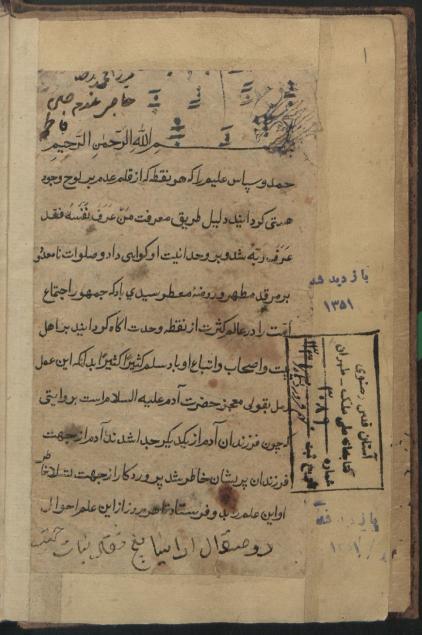 ۱
حاجر
بسم الله الرحمن الرحیم
حمد و سپاس علیم را که هر نقطه که از قلم عدم بر لوح وجود
هستی کردانید دلیل طریق معرفت من عرف نفسه فقد
عرف ربه شد و بر وحدانیت او کواهی داد و صلوات نامعدود
بر مرقد مطهر و روضهٔ معطر سیدی باد که جمهور اجتماع
امت را در عالم کثرت از نقطه وحدت آکاه کردانید بر اهل
بیت و اصحاب و اتباع او باد سلم کثیرا کثیرا بدانکه این عمل
رمل بقولی معجز حضرت آدم علیه السلام است بروایتی
که چون فرزندان آدم از یکدیکر جدا شدند آدم از جهت
فرزندان پریشان خاطر شد پروردکار از جهت
او این علم فرستاد تا هر روز از این علم احوال
باز دید شد
۱۳۵۱
آستان قدس رضوی
کتابخانه ملی ملک - طهران
شماره ۳۰۸۹
تاریخ ثبت
باز دید شد